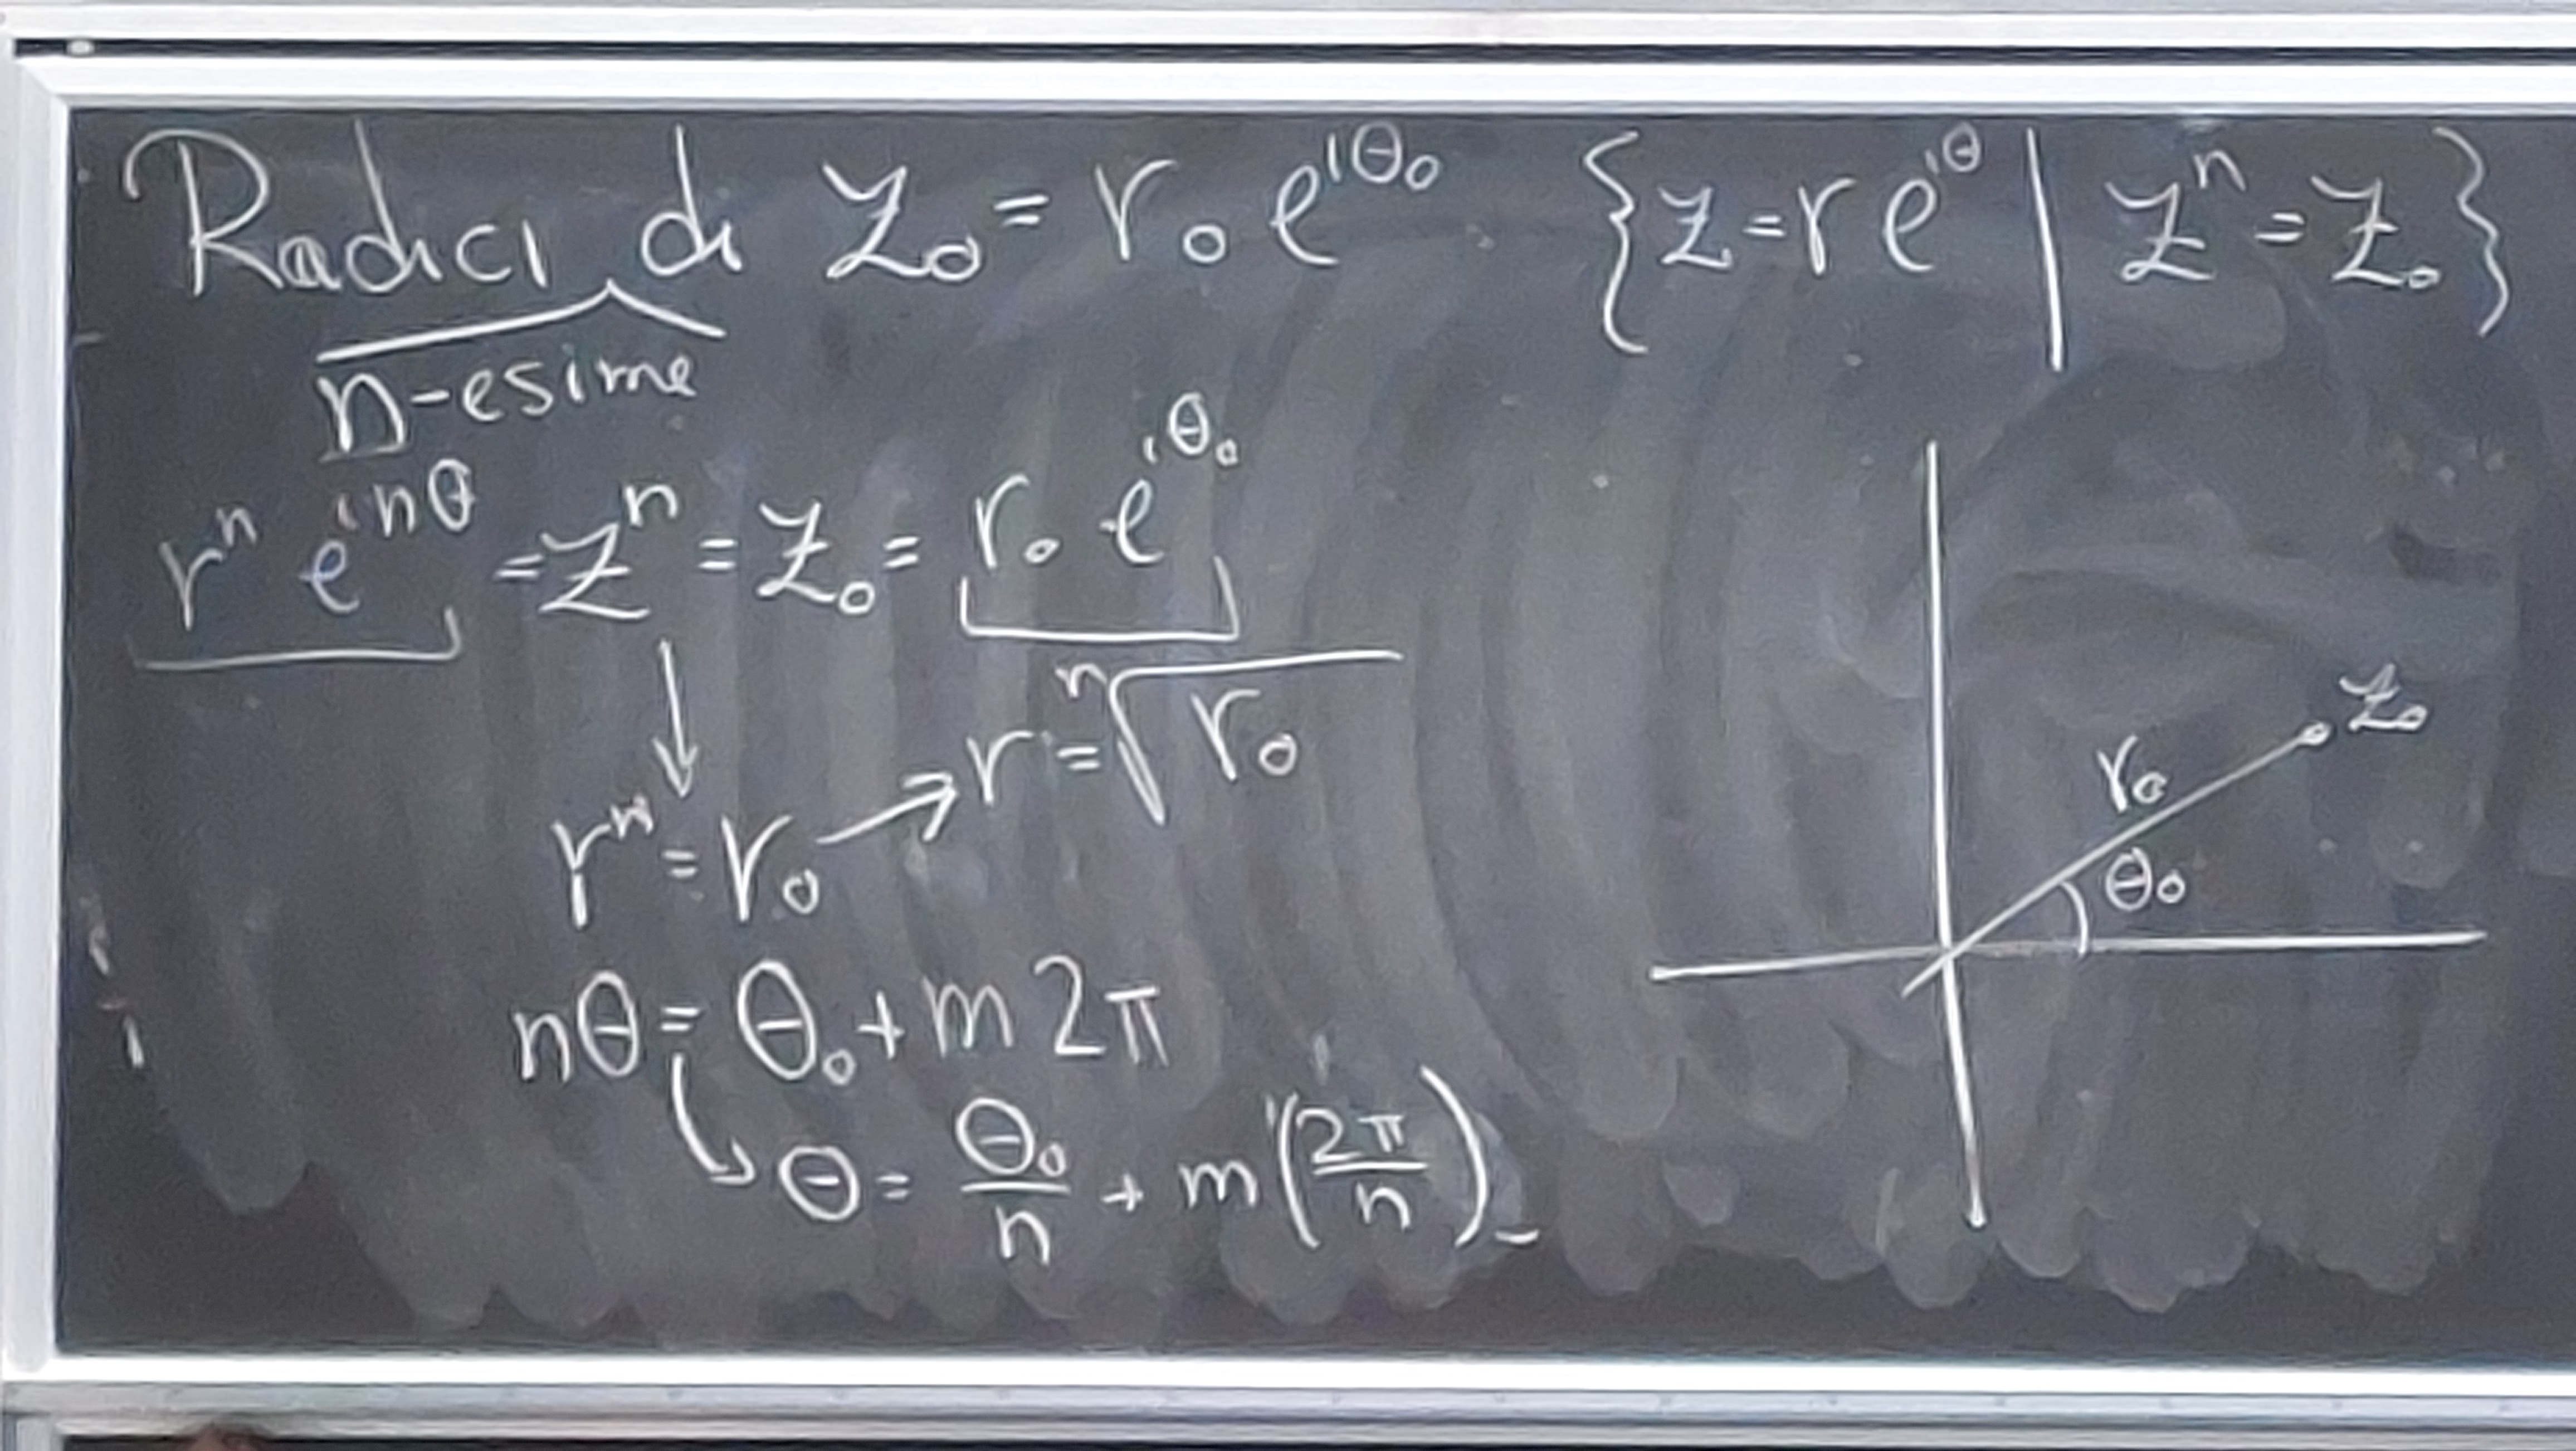 Radici di z₀ = r₀ e^{iθ₀} {z = r e^{iθ} | zⁿ = z₀}
n-esime
rⁿ e^{inθ} = zⁿ = z₀ = r₀ e^{iθ₀}
rⁿ = r₀ → r = ⁿ√r₀
nθ = θ₀ + m 2π
θ = θ₀/n + m(2π/n)
z₀
r₀
θ₀